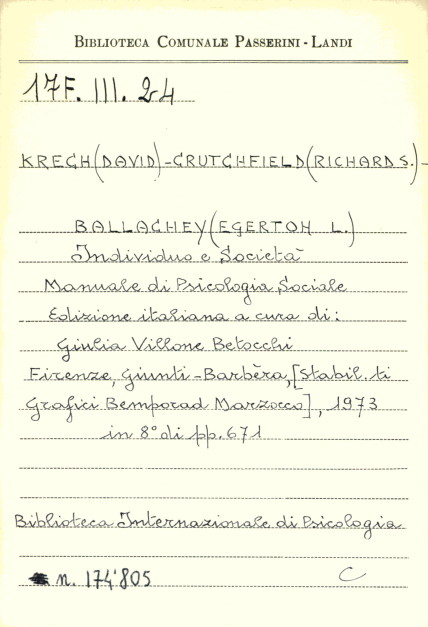 BIBLIOTECA COMUNALE PASSERINI - LANDI
17F. III. 24
KRECH (DAVID) - CRUTCHFIELD (RICHARD S.) -
BALLACHEY (EGERTON L.)
Individuo e Società
Manuale di Psicologia Sociale
Edizione italiana a cura di:
Giulia Villone Betocchi
Firenze, Giunti - Barbèra, [Stabil. ti
Grafici Bemporad Marzocco], 1973
in 8° di pp. 671
Biblioteca Internazionale di Psicologia
n. 174'805 C